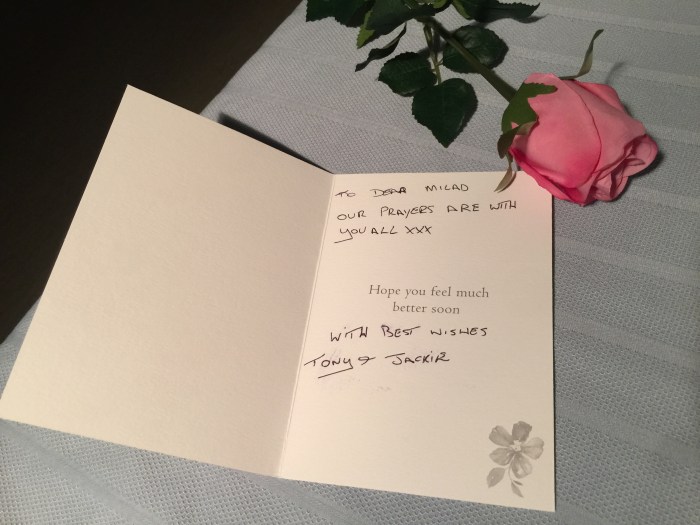 TO DEAR MILAD
OUR PRAYERS ARE WITH
YOU ALL XXX
Hope you feel much
better soon
WITH BEST WISHES
TONY & JACKIE